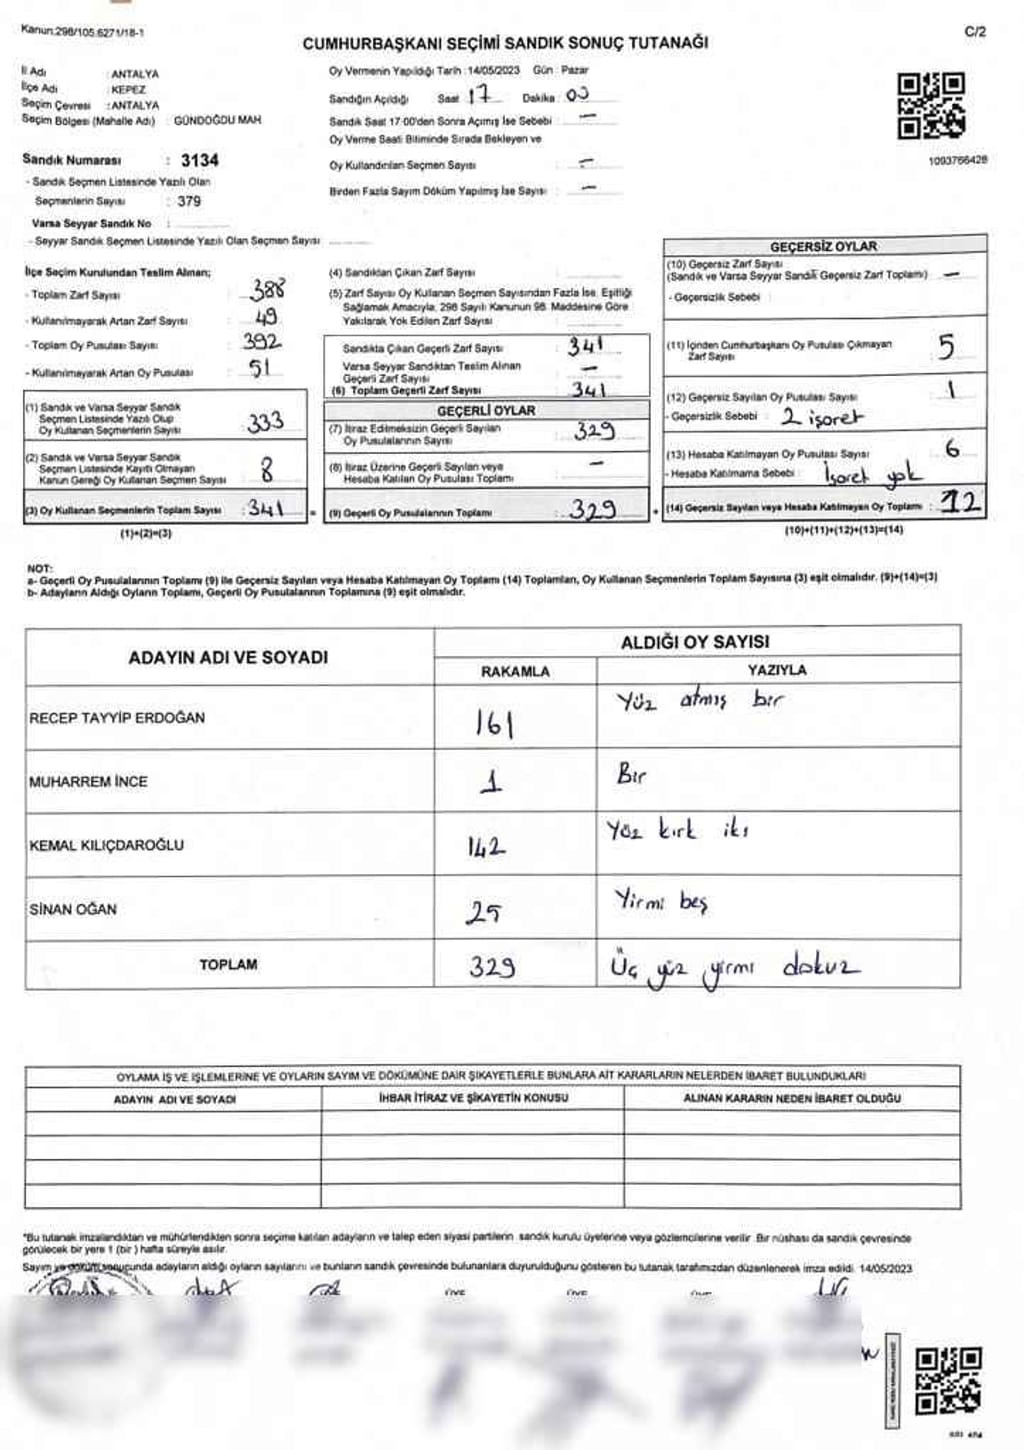 Kanun:298/105.6271/18-1
C/2
CUMHURBAŞKANI SEÇİMİ SANDIK SONUÇ TUTANAĞI
İl Adı : ANTALYA
İlçe Adı : KEPEZ
Seçim Çevresi : ANTALYA
Seçim Bölgesi (Mahalle Adı) : GÜNDOĞDU MAH
Sandık Numarası : 3134
- Sandık Seçmen Listesinde Yazılı Olan
Seçmenlerin Sayısı : 379
Varsa Seyyar Sandık No :
- Seyyar Sandık Seçmen Listesinde Yazılı Olan Seçmen Sayısı
Oy Vermenin Yapıldığı Tarih : 14/05/2023 Gün : Pazar
Sandığın Açıldığı Saat 17 Dakika : 00
Sandık Saat 17:00'den Sonra Açımış İse Sebebi : —
Oy Verme Saati Bitiminde Sırada Bekleyen ve
Oy Kullandırılan Seçmen Sayısı : —
Birden Fazla Sayım Döküm Yapılmış İse Sayısı : —
1093766428
İlçe Seçim Kurulundan Teslim Alınan;
- Toplam Zarf Sayısı : 388
- Kullanılmayarak Artan Zarf Sayısı : 49
- Toplam Oy Pusulası Sayısı : 392
- Kullanılmayarak Artan Oy Pusulası : 51
(1) Sandık ve Varsa Seyyar Sandık
Seçmen Listesinde Yazılı Olup
Oy Kullanan Seçmenlerin Sayısı : 333
(2) Sandık ve Varsa Seyyar Sandık
Seçmen Listesinde Kayıtlı Olmayan
Kanun Gereği Oy Kullanan Seçmen Sayısı : 8
(3) Oy Kullanan Seçmenlerin Toplam Sayısı : 341 =
(1)+(2)=(3)
(4) Sandıktan Çıkan Zarf Sayısı :
(5) Zarf Sayısı Oy Kullanan Seçmen Sayısından Fazla İse, Eşitliği
Sağlamak Amacıyla, 298 Sayılı Kanunun 98. Maddesine Göre
Yakılarak Yok Edilen Zarf Sayısı :
Sandıkta Çıkan Geçerli Zarf Sayısı : 341
Varsa Seyyar Sandıktan Teslim Alınan
Geçerli Zarf Sayısı : —
(6) Toplam Geçerli Zarf Sayısı : 341
GEÇERLİ OYLAR
(7) İtiraz Edilmeksizin Geçerli Sayılan
Oy Pusulalarının Sayısı : 329
(8) İtiraz Üzerine Geçerli Sayılan veya
Hesaba Katılan Oy Pusulası Toplamı : —
(9) Geçerli Oy Pusulalarının Toplamı : 329 +
GEÇERSİZ OYLAR
(10) Geçersiz Zarf Sayısı
(Sandık ve Varsa Seyyar Sandık Geçersiz Zarf Toplamı) : —
- Geçersizlik Sebebi :
(11) İçinden Cumhurbaşkanı Oy Pusulası Çıkmayan
Zarf Sayısı : 5
(12) Geçersiz Sayılan Oy Pusulası Sayısı : 1
- Geçersizlik Sebebi : 2 işaret
(13) Hesaba Katılmayan Oy Pusulası Sayısı : 6
- Hesaba Katılmama Sebebi : İşaret yok
(14) Geçersiz Sayılan veya Hesaba Katılmayan Oy Toplamı : 12
(10)+(11)+(12)+(13)=(14)
NOT:
a- Geçerli Oy Pusulalarının Toplamı (9) ile Geçersiz Sayılan veya Hesaba Katılmayan Oy Toplamı (14) Toplamları, Oy Kullanan Seçmenlerin Toplam Sayısına (3) eşit olmalıdır. (9)+(14)=(3)
b- Adayların Aldığı Oyların Toplamı, Geçerli Oy Pusulalarının Toplamına (9) eşit olmalıdır.
ADAYIN ADI VE SOYADI
ALDIĞI OY SAYISI
RAKAMLA YAZIYLA
RECEP TAYYİP ERDOĞAN 161 Yüz atmış bir
MUHARREM İNCE 1 Bir
KEMAL KILIÇDAROĞLU 142 Yüz kırk iki
SİNAN OĞAN 25 Yirmi beş
TOPLAM 329 Üç yüz yirmi dokuz
OYLAMA İŞ VE İŞLEMLERİNE VE OYLARIN SAYIM VE DÖKÜMÜNE DAİR ŞİKAYETLERLE BUNLARA AİT KARARLARIN NELERDEN İBARET BULUNDUKLARI
ADAYIN ADI VE SOYADI İHBAR İTİRAZ VE ŞİKAYETİN KONUSU ALINAN KARARIN NEDEN İBARET OLDUĞU
*Bu tutanak imzalandıktan ve mühürlendikten sonra seçime katılan adayların ve talep eden siyasi partilerin sandık kurulu üyelerine veya gözlemcilerine verilir. Bir nüshası da sandık çevresinde
görülecek bir yere 1 (bir) hafta süreyle asılır.
Sayım ve döküm sonucunda adayların aldığı oyların sayılarını ve bunların sandık çevresinde bulunanlara duyurulduğunu gösteren bu tutanak tarafımızdan düzenlenerek imza edildi. 14/05/2023